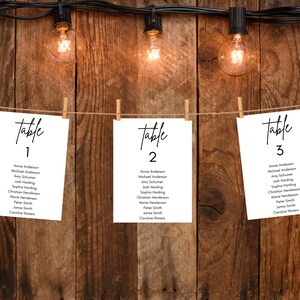 table
1
Annie Anderson
Michael Anderson
Amy Schumer
Josh Harding
Sophia Harding
Christian Henderson
Marie Henderson
Peter Smith
Jamie Smith
Caroline Waters
table
2
Annie Anderson
Michael Anderson
Amy Schumer
Josh Harding
Sophia Harding
Christian Henderson
Marie Henderson
Peter Smith
Jamie Smith
Caroline Waters
table
3
Annie Anderson
Michael Anderson
Amy Schumer
Josh Harding
Sophia Harding
Christian Henderson
Marie Henderson
Peter Smith
Jamie Smith
Caroline Waters